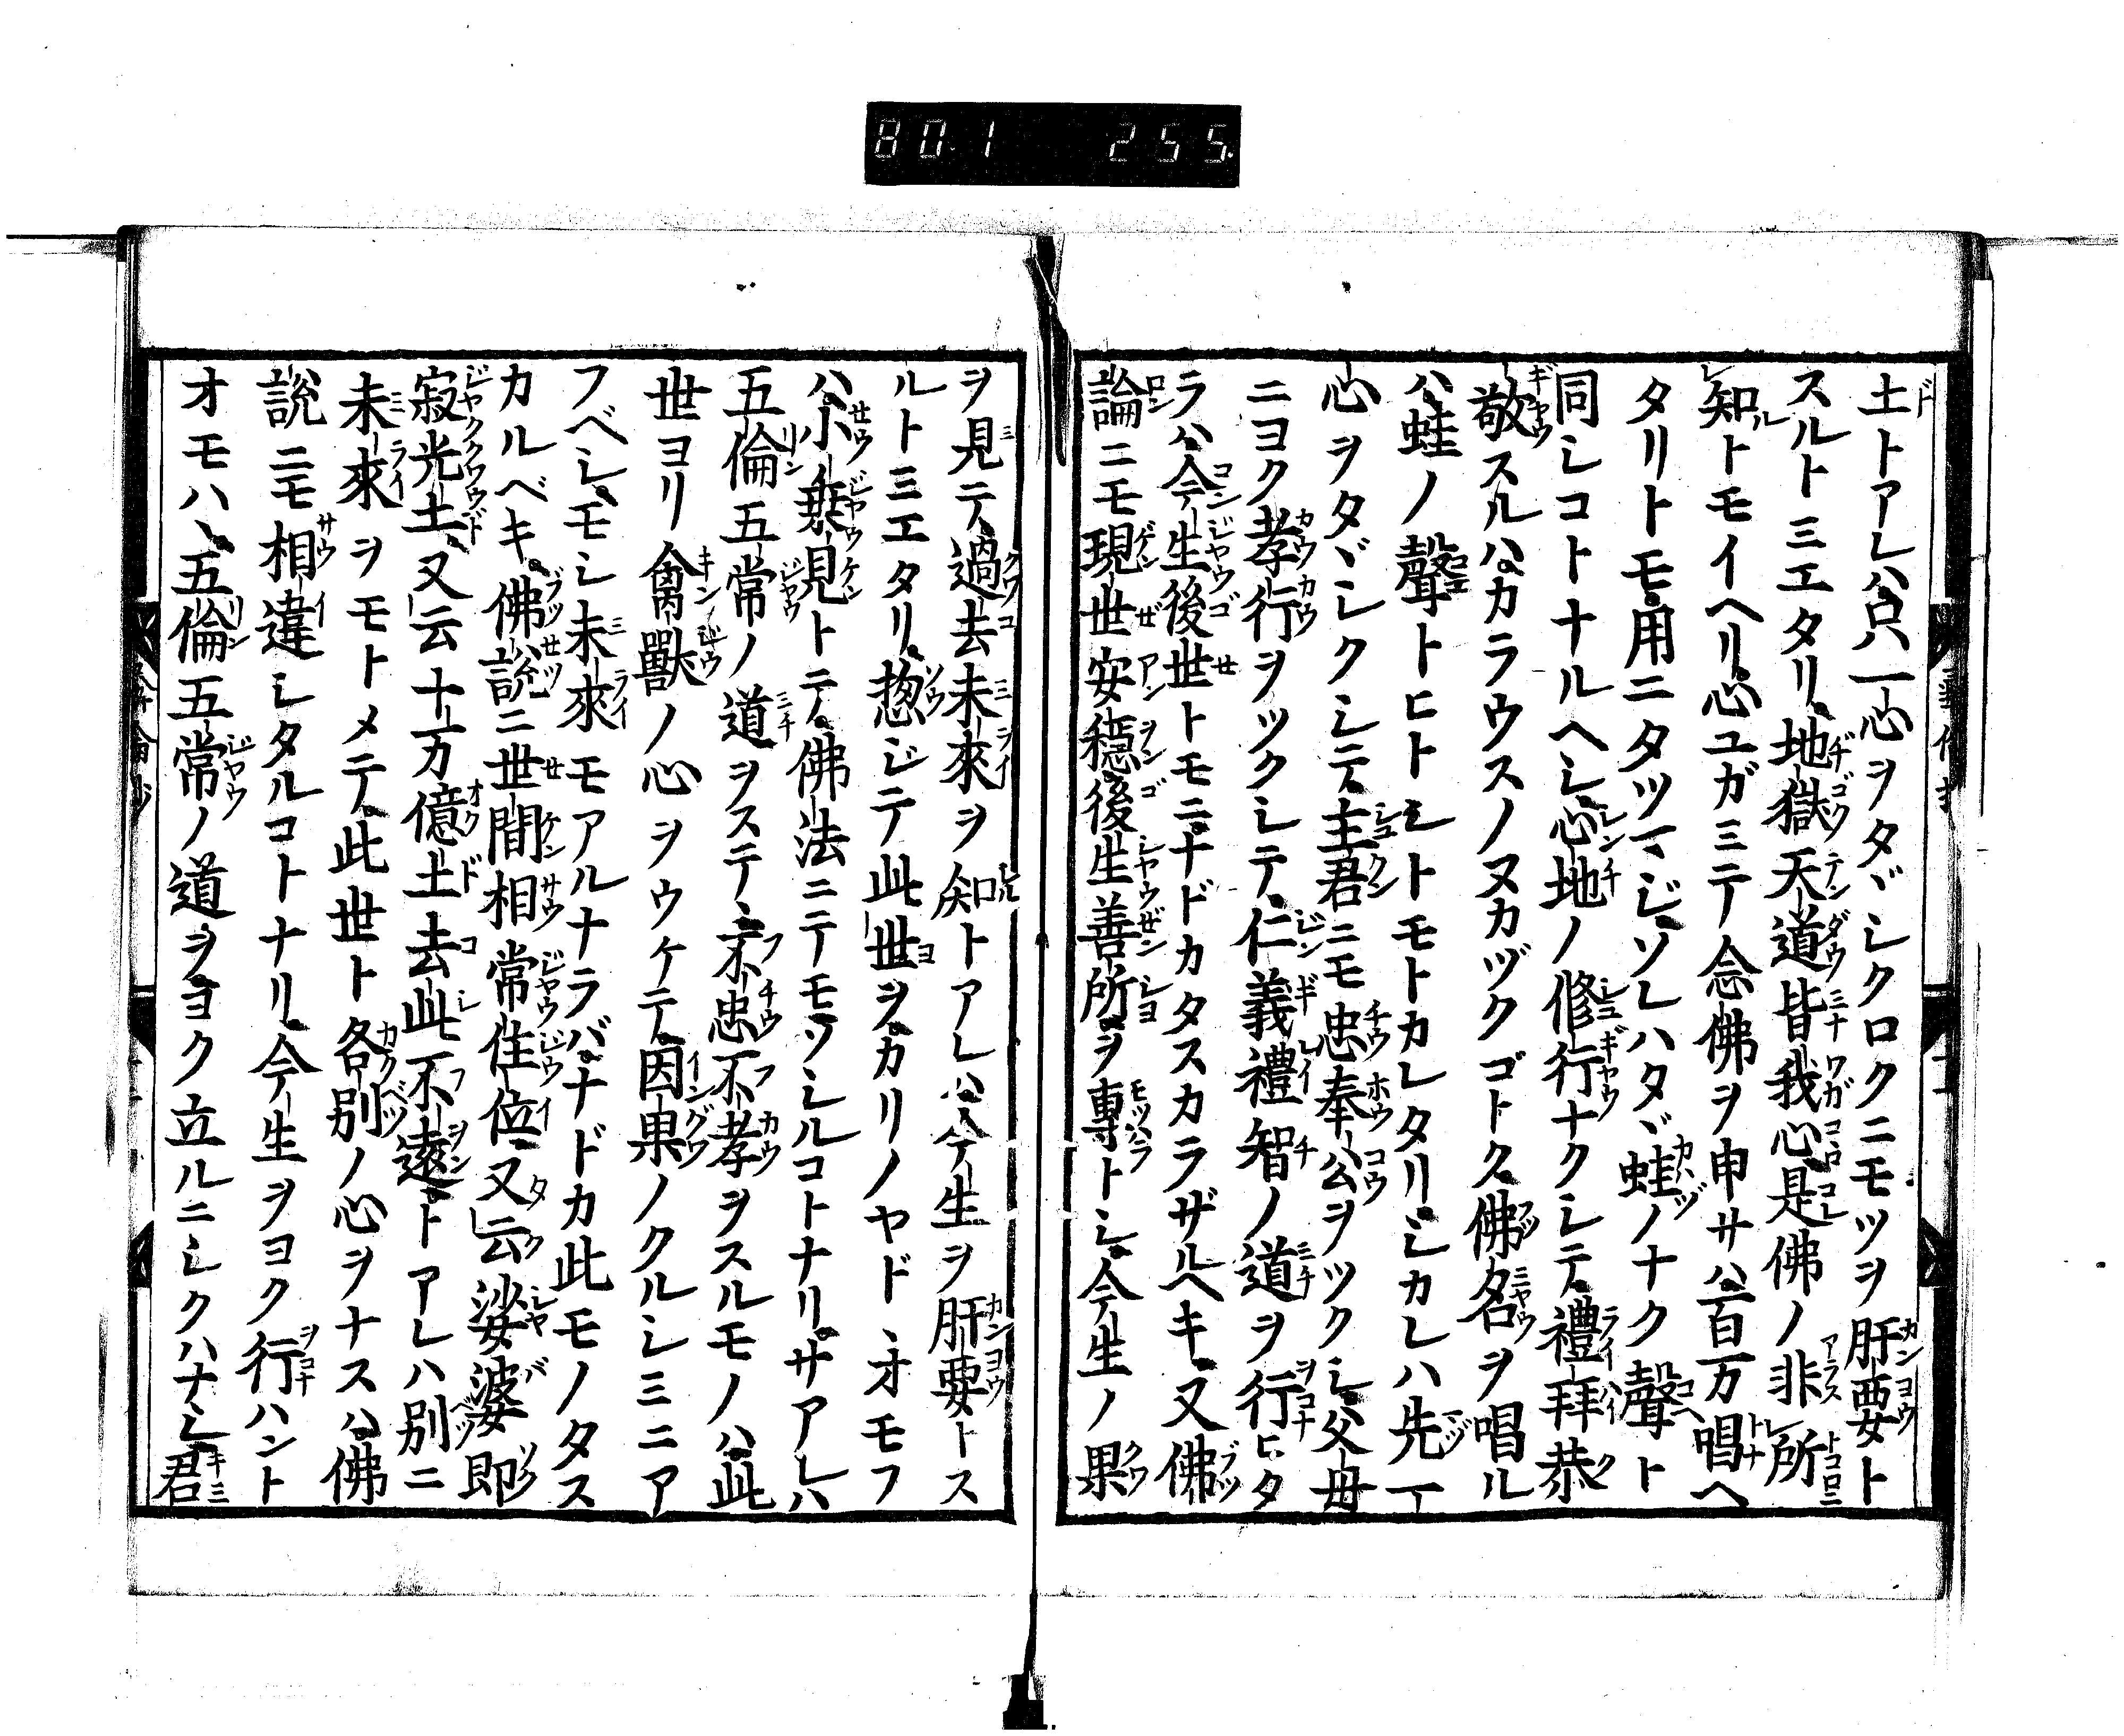 80.1 255.
土トアレハ只一心ヲタヾシクロクニモツヲ肝要ト
スルト三エタリ地獄天道皆我心是佛ノ非レ所
レ知トモイヘリ心ユガミテ念佛ヲ申サハ百万唱ヘ
タリトモ用ニタツマジソレハタヾ蛙ノナク聲ト
同シコトナルヘシ心地ノ修行ナクシテ禮拜恭
敬スルハカラウスノヌカヅクゴトク佛名ヲ唱ル
ハ蛙ノ聲トヒトシトモトカレタリシカレハ先一
心ヲタヾシクシテ主君ニモ忠奉公ヲツクシ父母
ニヨク孝行ヲツクシテ仁義禮智ノ道ヲ行ヒタ
ラハ今生後世トモニナドカタスカラザルヘキ又佛
論ニモ現世安穩後生善所ヲ專トシ今生ノ果
ヲ見テ過去未來ヲ知トアレハ今生ヲ肝要トス
ルト三エタリ惣ジテ此世ヲカリノヤドヽオモフ
ハ小乗見トテ佛法ニテモソシルコトナリサアレハ
五倫五常ノ道ヲステ不忠不孝ヲスルモノハ此
世ヨリ禽獸ノ心ヲウケテ因果ノクルシミニア
フベシモシ未來モアルナラバナドカ此モノタス
カルベキ佛説ニ世間相常住位又云娑婆即
寂光土又云十万億土去此不遠トアレハ別ニ
未來ヲモトメテ此世ト各別ノ心ヲナスハ佛
説ニモ相違シタルコトナリ今生ヲヨク行ハント
オモハヽ五倫五常ノ道ヲヨク立ルニシクハナシ君